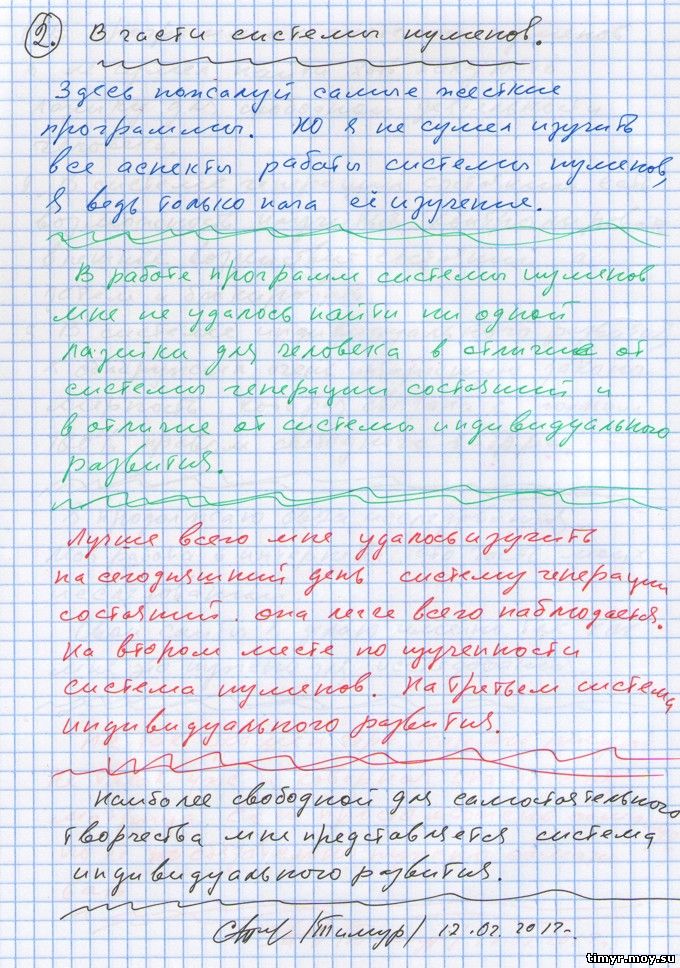 2. В части системы нуменов.
Здесь пожалуй самые жесткие
программы. Но я не сумел изучить
все аспекты работы системы нуменов,
я ведь только нача её изучение.
В работе программ системы нуменов
мне не удалось найти ни одной
лазейки для человека в отличие от
системы генерации состояний и
в отличие от системы индивидуального
развития.
Лучше всего мне удалось изучить
на сегодняшний день систему генерации
состояний. она легче всего наблюдается.
На втором месте по изученности
система нуменов. На третьем система
индивидуального развития.
Наиболее свободной для самостоятельного
творчества мне представляется система
индивидуального развития.
/Тимур/ 12.02.2012г.
timyr.moy.su